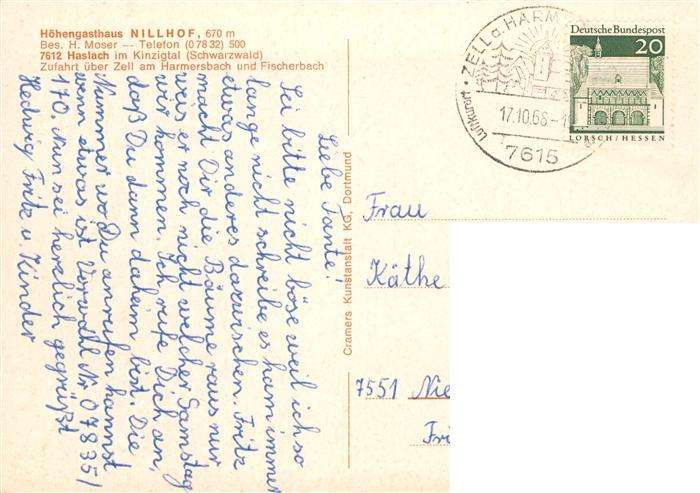 Höhengasthaus NILLHOF, 670 m
Bes. H. Moser — Telefon (0 78 32) 500
7612 Haslach im Kinzigtal (Schwarzwald)
Zufahrt über Zell am Harmersbach und Fischerbach
Liebe Tante!
Sei bitte nicht böse weil ich so
lange nicht schreibe es kam immer
etwas anderes dazwischen. Fritz
macht Dir die Bäume raus nur
weis er noch nicht welcher Samstag
wir kommen. Ich rufe Dich an,
daß Du dann daheim bist. Die
Nummer wo Du anrufen kannst
wenn etwas ist Vorwahl Nr 07835/
170. Nun sei herzlich gegrüßt
Hedwig Fritz u. Kinder
Cramers Kunstanstalt KG, Dortmund
Luftkurort · ZELL a. HARM
17.10.66-1
7615
Deutsche Bundespost
20
LORSCH/HESSEN
Frau
Käthe
7551 Nie
Fri